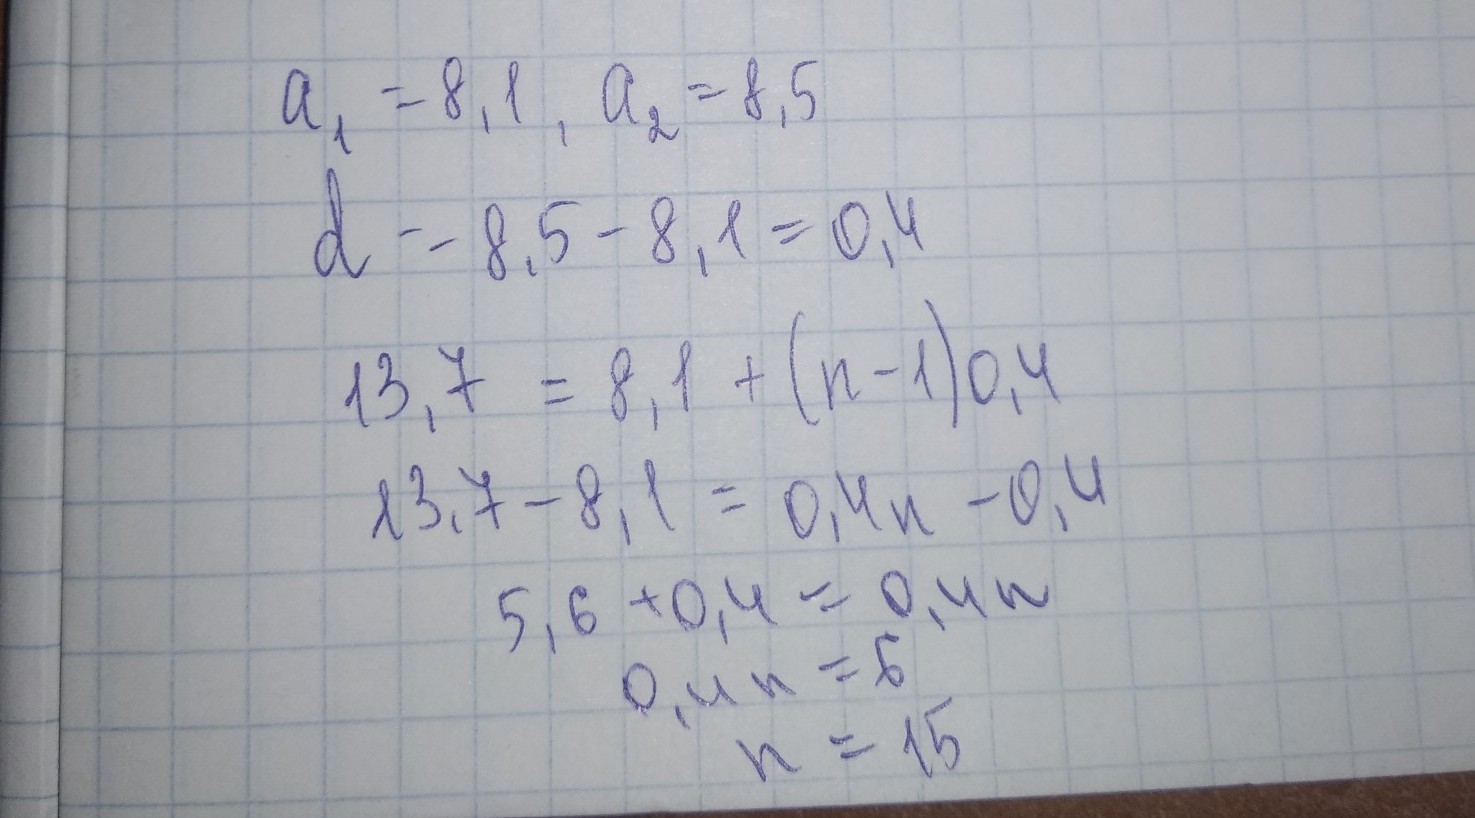 a₁ = 8,1, a₂ = 8,5
d = 8,5 - 8,1 = 0,4
13,7 = 8,1 + (n-1)0,4
13,7 - 8,1 = 0,4n - 0,4
5,6 + 0,4 = 0,4n
0,4n = 6
n = 15